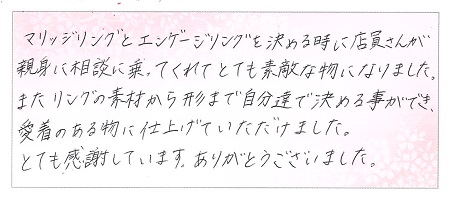 マリッジリングとエンゲージリングを決める時に店員さんが
親身に相談に乗ってくれてとても素敵な物になりました。
またリングの素材から形まで自分達で決める事ができ、
愛着のある物に仕上げていただけました。
とても感謝しています。ありがとうございました。